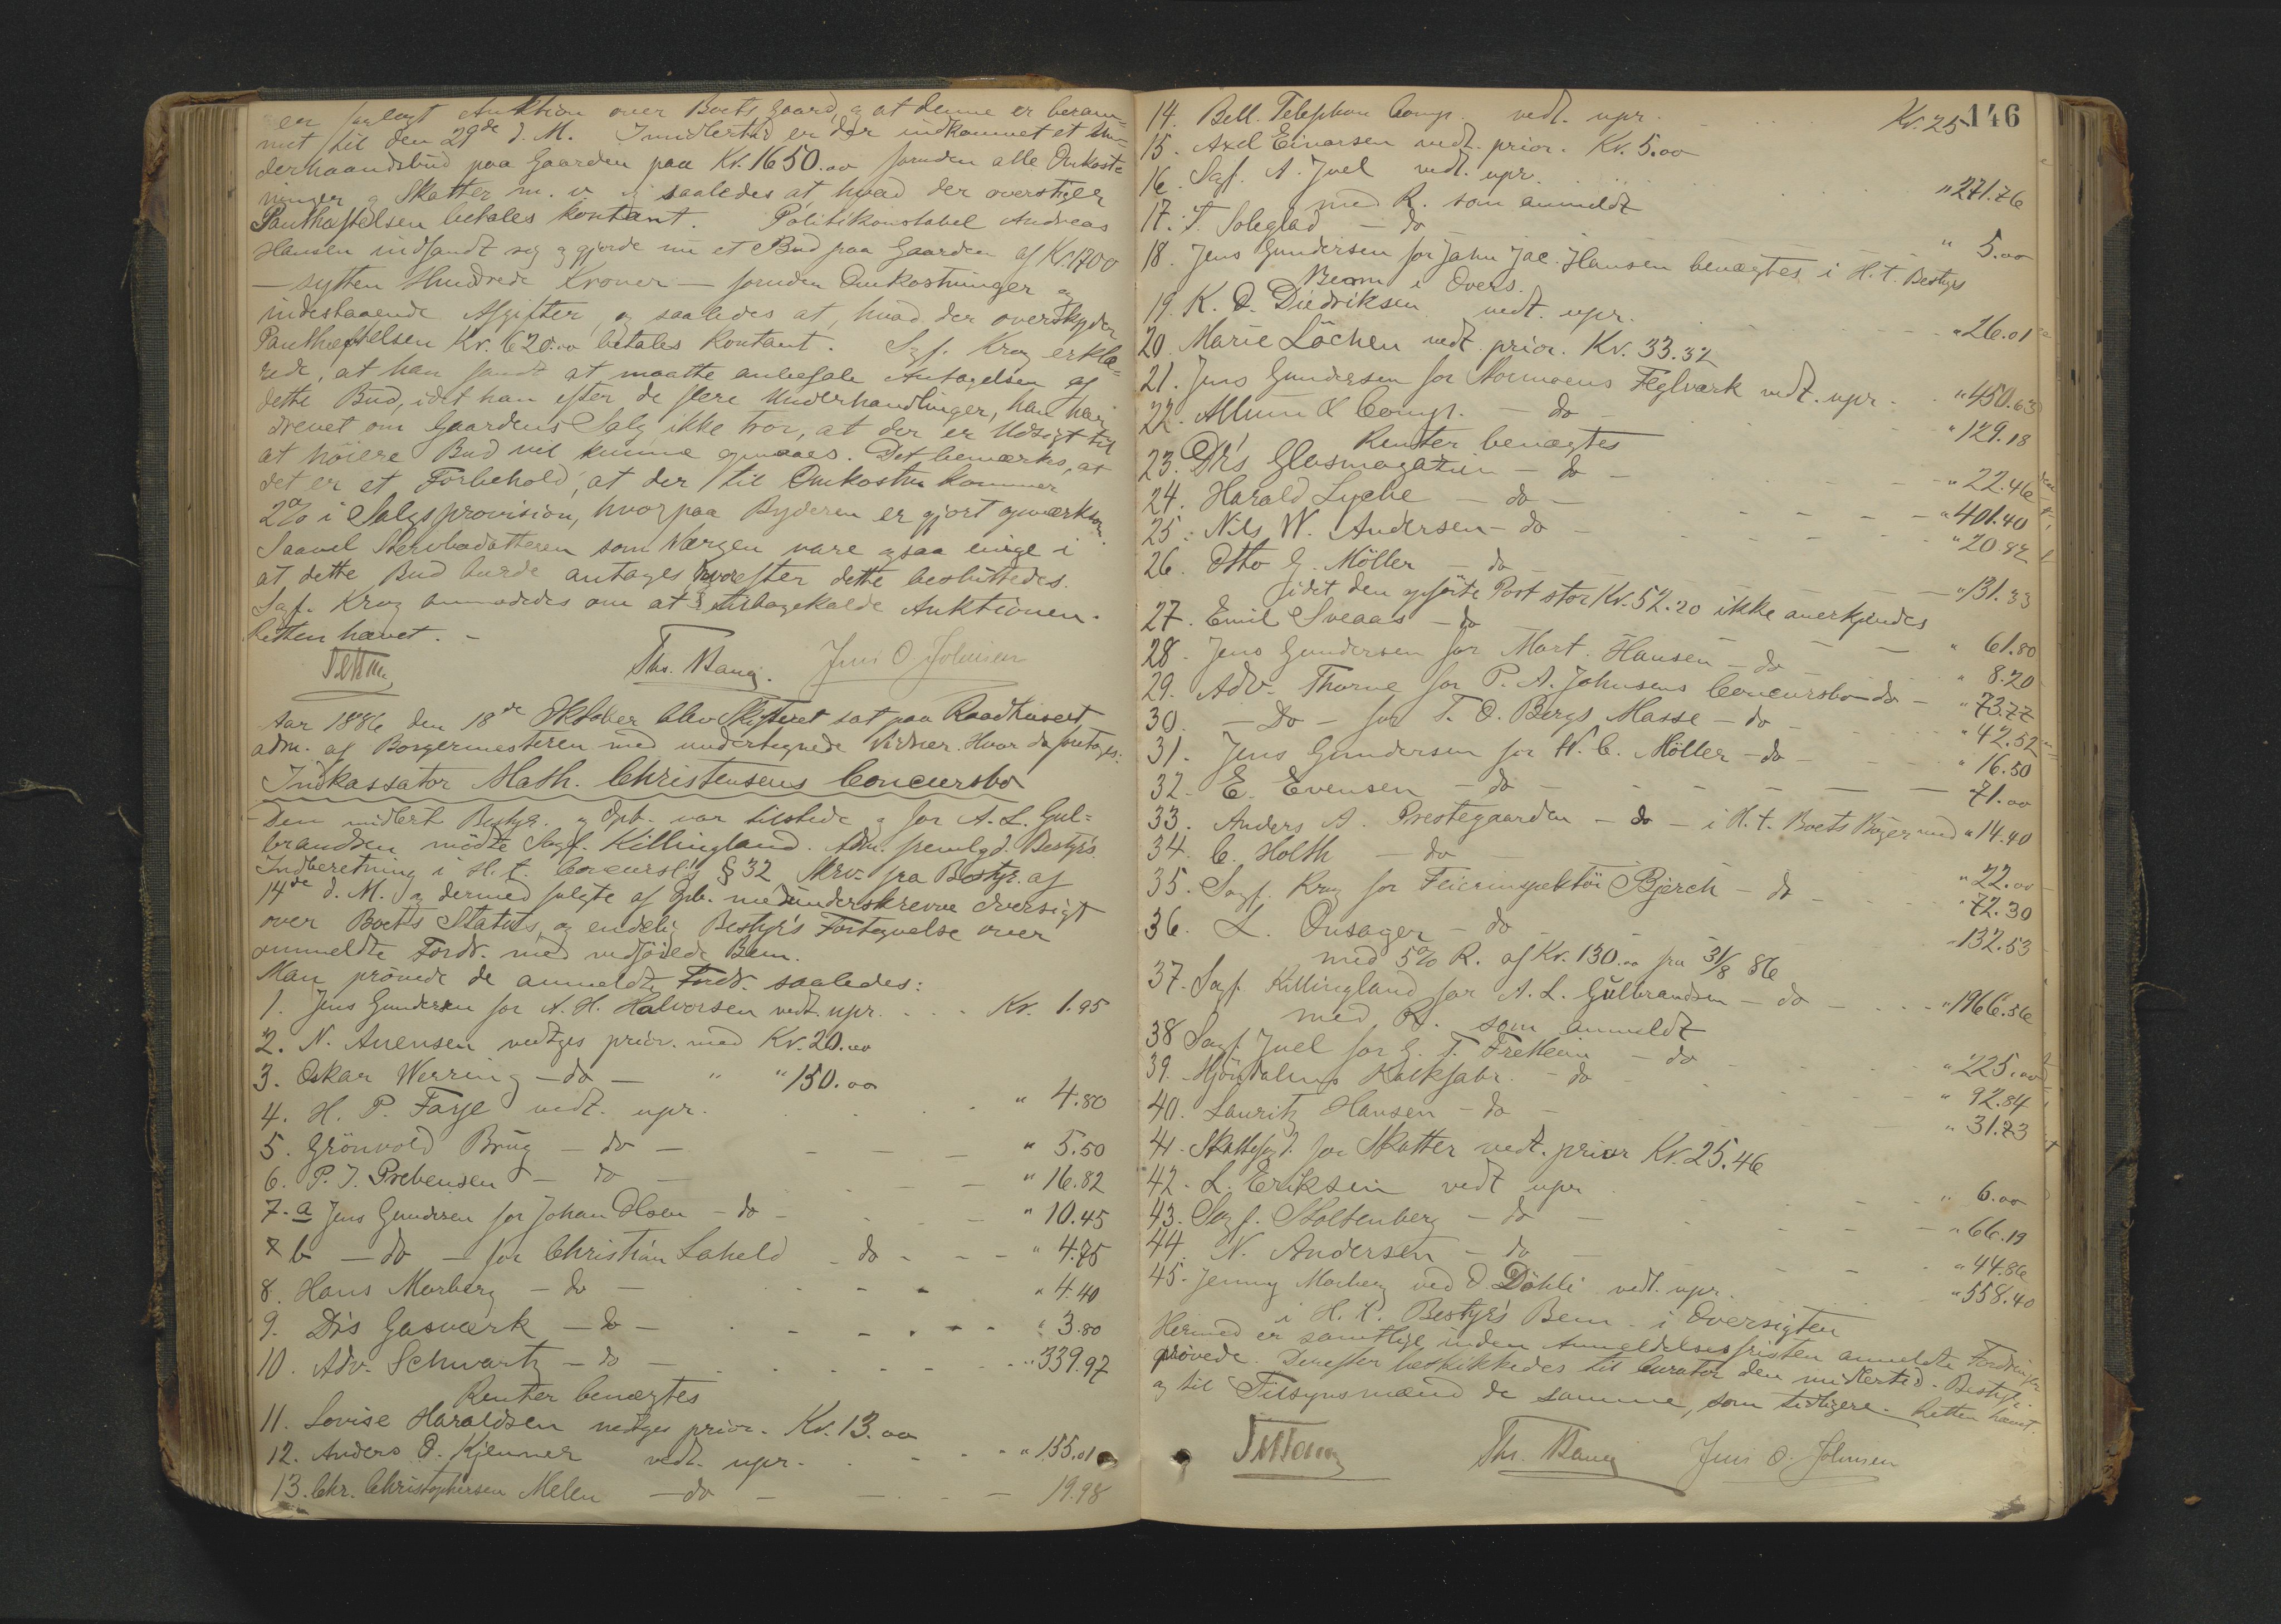 er forlagt Auktion over Boets Gaard, og at denne er beram=
met til den 29de d. M. Imidlertid er der indkommet et Un=
derhaandsbud paa Gaarden paa Kr. 1650.00 foruden alle Omkost=
ninger og Skatter m. v. og saaledes at, hvad der overstiger
Panthæftelsen betales kontant. Politikonstabel Andreas
Hansen indfandt sig og gjorde nu et Bud paa Gaarden af Kr. 1700
— sytten Hundrede Kroner — foruden Omkostninger og
indestaaende Afgifter, og saaledes at, hvad der overskyder
Panthæftelsen Kr. 620.00 betales kontant. Sagf. Krog erklæ=
rede, at han fandt at maatte anbefale Antagelsen af
dette Bud, idet han efter de flere Underhandlinger, han har
drevet om Gaardens Salg ikke tror, at der er Udsigt til
at höiere Bud vil kunne opnaaes. Det bemærkes, at
det er et Forbehold, at der til Omkostn. kommer
2% i Salgsprovision, hvorpaa Byderen er gjort opmærksom.
Saavel Stervbodatteren som Værgen vare ogsaa enige i
at dette Bud burde antages, hvorefter dette besluttedes.
Sagf. Krog anmodedes om at tilbagekalde Auktionen.
Retten hævet. -
Ths. Bang. Jens O. Johnsen
Aar 1886 den 18de Oktober blev Skifteret sat paa Raadhuset,
adm. af Borgermesteren med undertegnede Vidner. Hvor da foretoges:
Indkassator Math. Christensens Concursbo
Den midlert. Bestyr. og Opb. var tilstede og for A. L. Gul=
brandsen mödte Sagf. Killingland. Adm. fremlgd. Bestyr's
Indberetning i H. t. Concursl's § 32 Skrv. fra Bestyr. af
14de d. M. og dermed fulgte af Opb. medunderskrevne Oversigt
over Boets Status, og endelig Bestyr's Fortegnelse over
anmeldte Fordr. med vedföiede Bem.
Man prövede de anmeldte Fordr. saaledes:
1. Jens Gundersen for A. H. Halvorsen vedt. upr. . . . Kr. 1.95
2. N. Anensen vedtges prior. med Kr. 20.00
3. Oskar Werring - do - " " 150.00
4. H. P. Faye vedt. upr. " 4.80
5. Grönvold Brug - do - " 5.50
6. P. J. Prebensen - do - " 16.82
7. a Jens Gundersen for Johan Olsen - do - " 10.45
7 b - do - for Christian Laheld - do - " 4.75
8. Hans Morberg - do - " 4.40
9. D's Gasværk - do - " 3.80
10. Adv. Schwartz - do - " 339.97
Renter benægtes
11. Lovise Haraldsen vedtges prior. Kr. 13.00
12. Anders O. Kjenner vedt. upr. " 155.01
13. Chr. Christophersen Melen - do - 19.98
146
14. Bell. Telephon Comp. vedt. upr. Kr. 25
15. Axel Einarsen vedt. prior. Kr. 5.00
16. Sagf. A. Juel vedt. upr. " 271.76
med R. som anmeldt
17. T. Soleglad - do " 5.00
18. Jens Gundersen for Jahn Jac. Hansen benægtes i H. t. Bestyrs
Bem i Overs.
19. K. O. Diedriksen vedt. upr. " 26.01
20. Marie Löchen vedt. prior. Kr. 33.32
21. Jens Gundersen for Mormoens Teglværk vedt. upr. " 450.63
22. Allum & Comp. - do - " 129.18
Renter benægtes
23. D's Glasmagazin - do - " 22.46
24. Harald Lyche - do - " 401.40
25. Nils W. Andersen - do - " 20.82
26. Otto G. Möller - do - " 131.33
idet den opförte Post stor Kr. 52.20 ikke anerkjendes
27. Emil Sveaas - do " 61.80
28. Jens Gundersen for Mart. Hansen - do " 8.20
29. Adv. Thorne for P. A. Johnsens Concursbo - do - " 73.77
30. - Do - for T. O. Bergs Masse - do - " 42.52
31. Jens Gundersen for W. C. Möller - do - " 16.50
32. E. Evensen - do - 71.00
33. Anders A. Prestegaarden - do - i H. t. Boets Böger med " 14.40
34. C. Holth - do - " 22.00
35. Sagf. Krog for Feierinspektör Bjerch - do " 72.30
36. L. Onsager - do - 132.53
med 5% R. af Kr. 130.00 fra 31/8 86
37. Sagf. Killingland for A. L. Gulbrandsen - do - " 1966.56
med R. som anmeldt
38 Sagf. Juel for G. T. Fretheim - do " 225.00
39. Mjöndalens Kalkfabr. - do " 92.84
40. Lauritz Hansen - do - " 31.73
41. Skattefogd. for Skatter vedt. prior Kr. 25.46
42. L. Eriksen vedt upr " 6.00
43. Sagf. Stoltenberg - do - " 66.19
44. N. Andersen - do - " 44.86
45. Jenny Morberg ved O. Döhli vedt. upr. " 558.40
i H. t. Bestyr's Bem. i Oversigten
Hermed er samtlige inden Anmeldelsesfristen anmeldte Fordringer
prövede. Derefter beskikkedes til Curator den midlertid. Bestyr.
og til Tilsynsmænd de samme, som tidligere. Retten hævet.
Ths. Bang Jens O. Johnsen